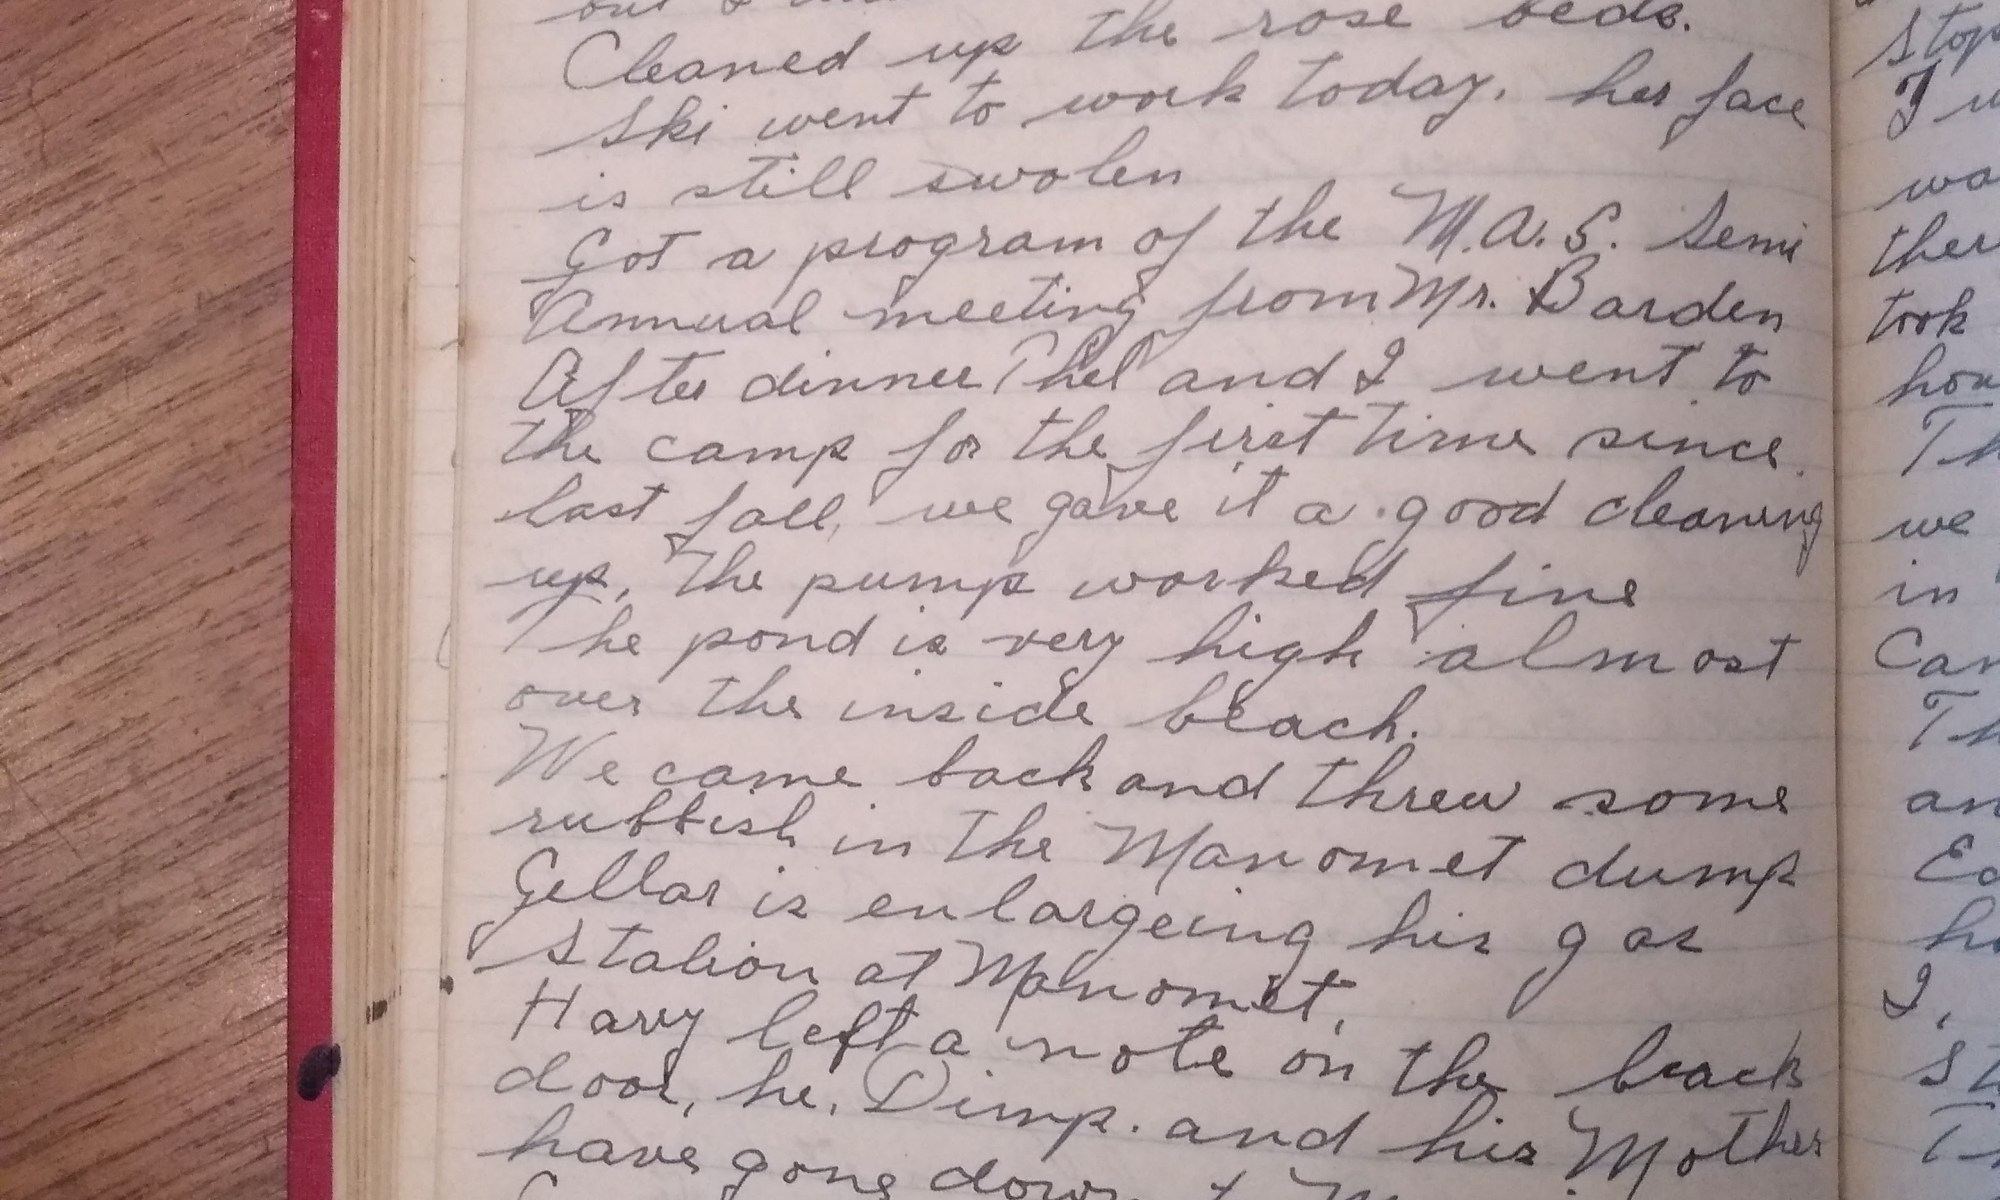 but I
Cleaned up the rose beds.
Ski went to work today. her face
is still swolen
Got a program of the M.A.S. Semi
Annual meeting from Mr. Barden
After dinner Phel and I went to
the camp for the first time since
last fall, we gave it a good cleaning
up, The pump worked fine
The pond is very high almost
over the inside beach.
We came back and threw some
rubbish in the Manomet dump
Gellar is enlargeing his gas
station at Manomet,
Harry left a note on the back
door, he, Dimp. and his Mother
have gone down to
Stop
I
wa
ther
took
hou
Th
we
in
Car
Th
an
Ed
ho
I,
St
Th